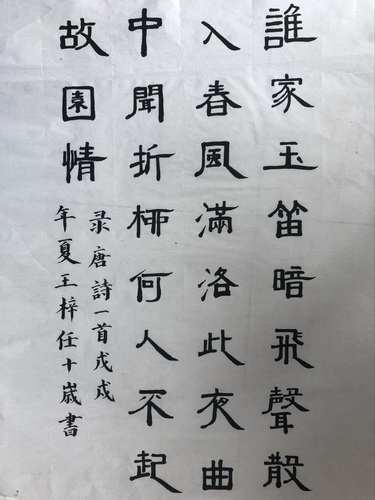 誰家玉笛暗飛聲散
入春風滿洛此夜曲
中聞折桺何人不起
故園情
录唐詩一首戊戌
年夏王梓任十歲書